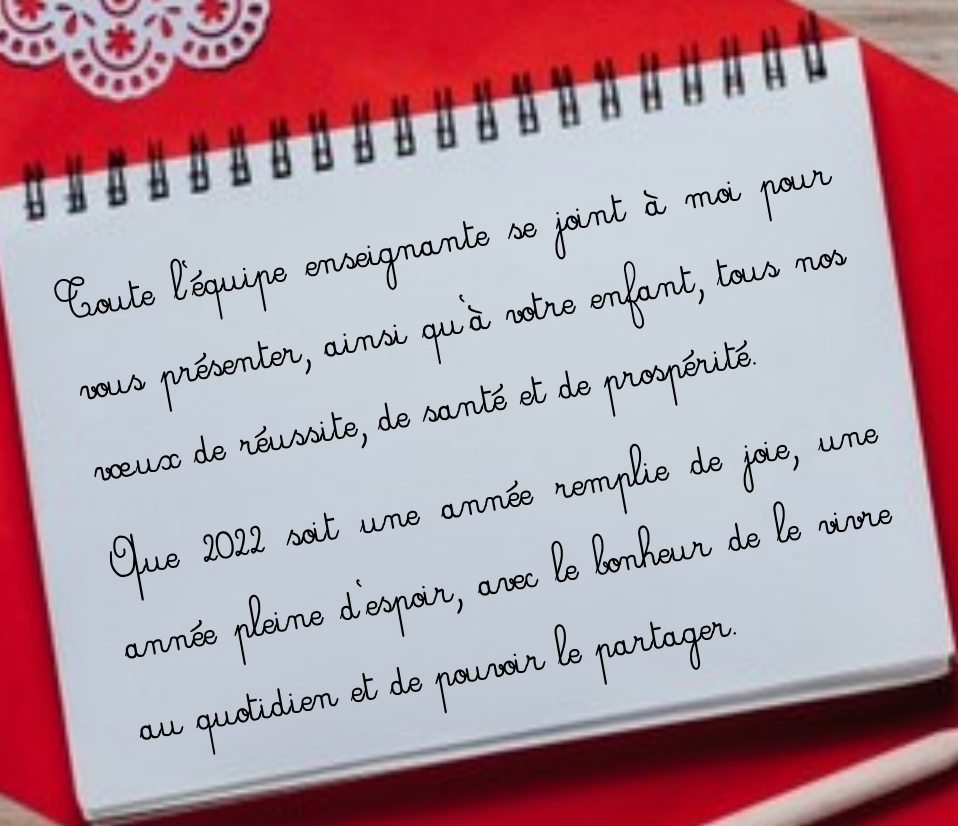 Toute l'équipe enseignante se joint à moi pour
vous présenter, ainsi qu'à votre enfant, tous nos
vœux de réussite, de santé et de prospérité.
Que 2022 soit une année remplie de joie, une
année pleine d'espoir, avec le bonheur de le vivre
au quotidien et de pouvoir le partager.